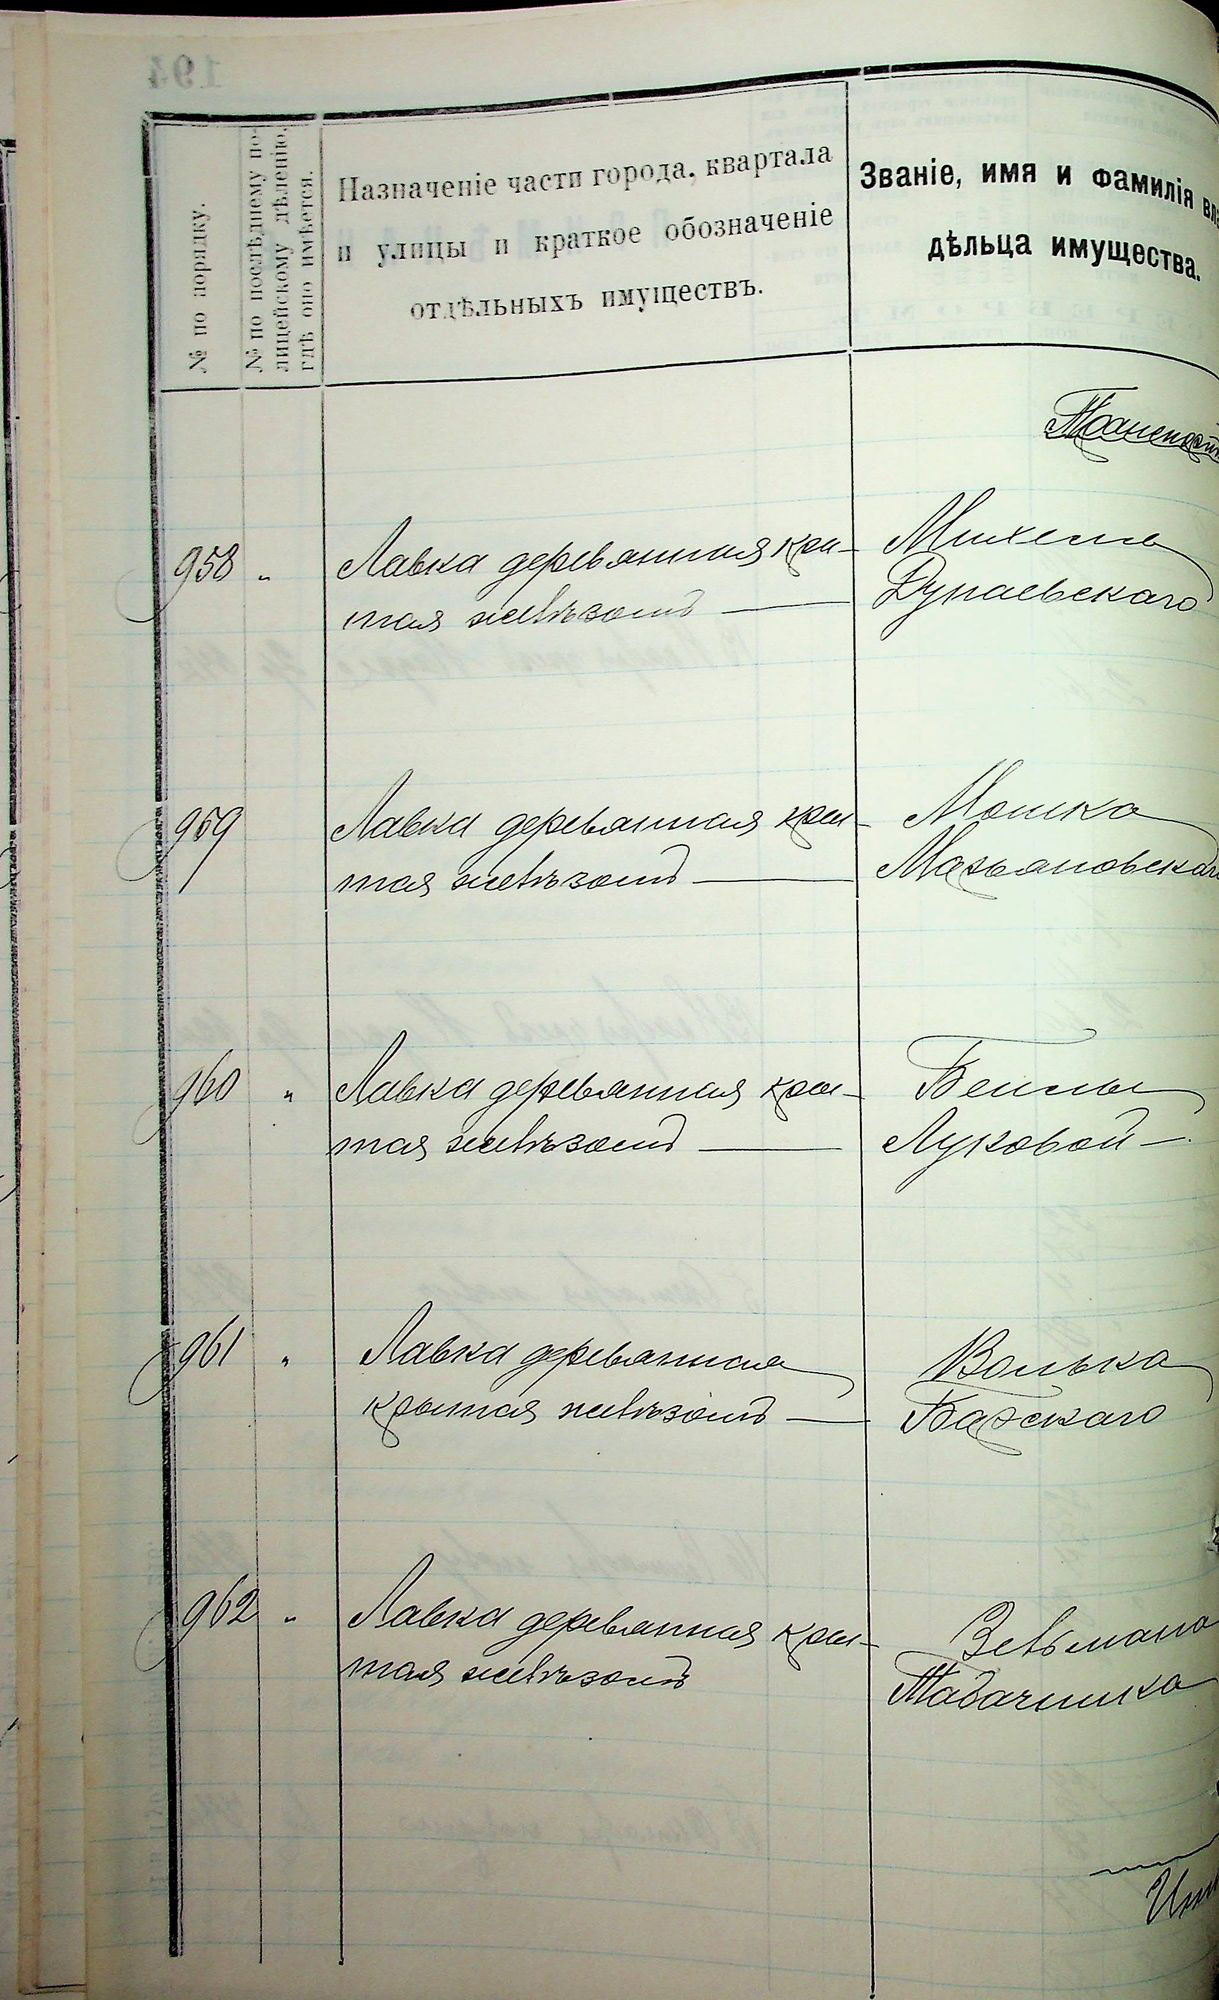 194
№ по порядку.
№ по послѣднему по-
лицейскому дѣленію,
гдѣ оно имѣется.
Назначеніе части города, квартала
и улицы и краткое обозначеніе
отдѣльныхъ имуществъ.
Званіе, имя и фамилія вла
дѣльца имущества.
Транспорт
958 " Лавка деревянная кры-
тая желѣзомъ —
Михеля
Дунаевскаго
959 Лавка деревянная кры-
тая желѣзомъ —
Мошка
Мазьяновскаго
960 " Лавка деревянная кры-
тая желѣзомъ —
Бейлы
Луковой —
961 " Лавка деревянная
крытая желѣзомъ —
Волька
Барскаго
962 " Лавка деревянная кры-
тая желѣзомъ
Зельмана
Табачника
Ито